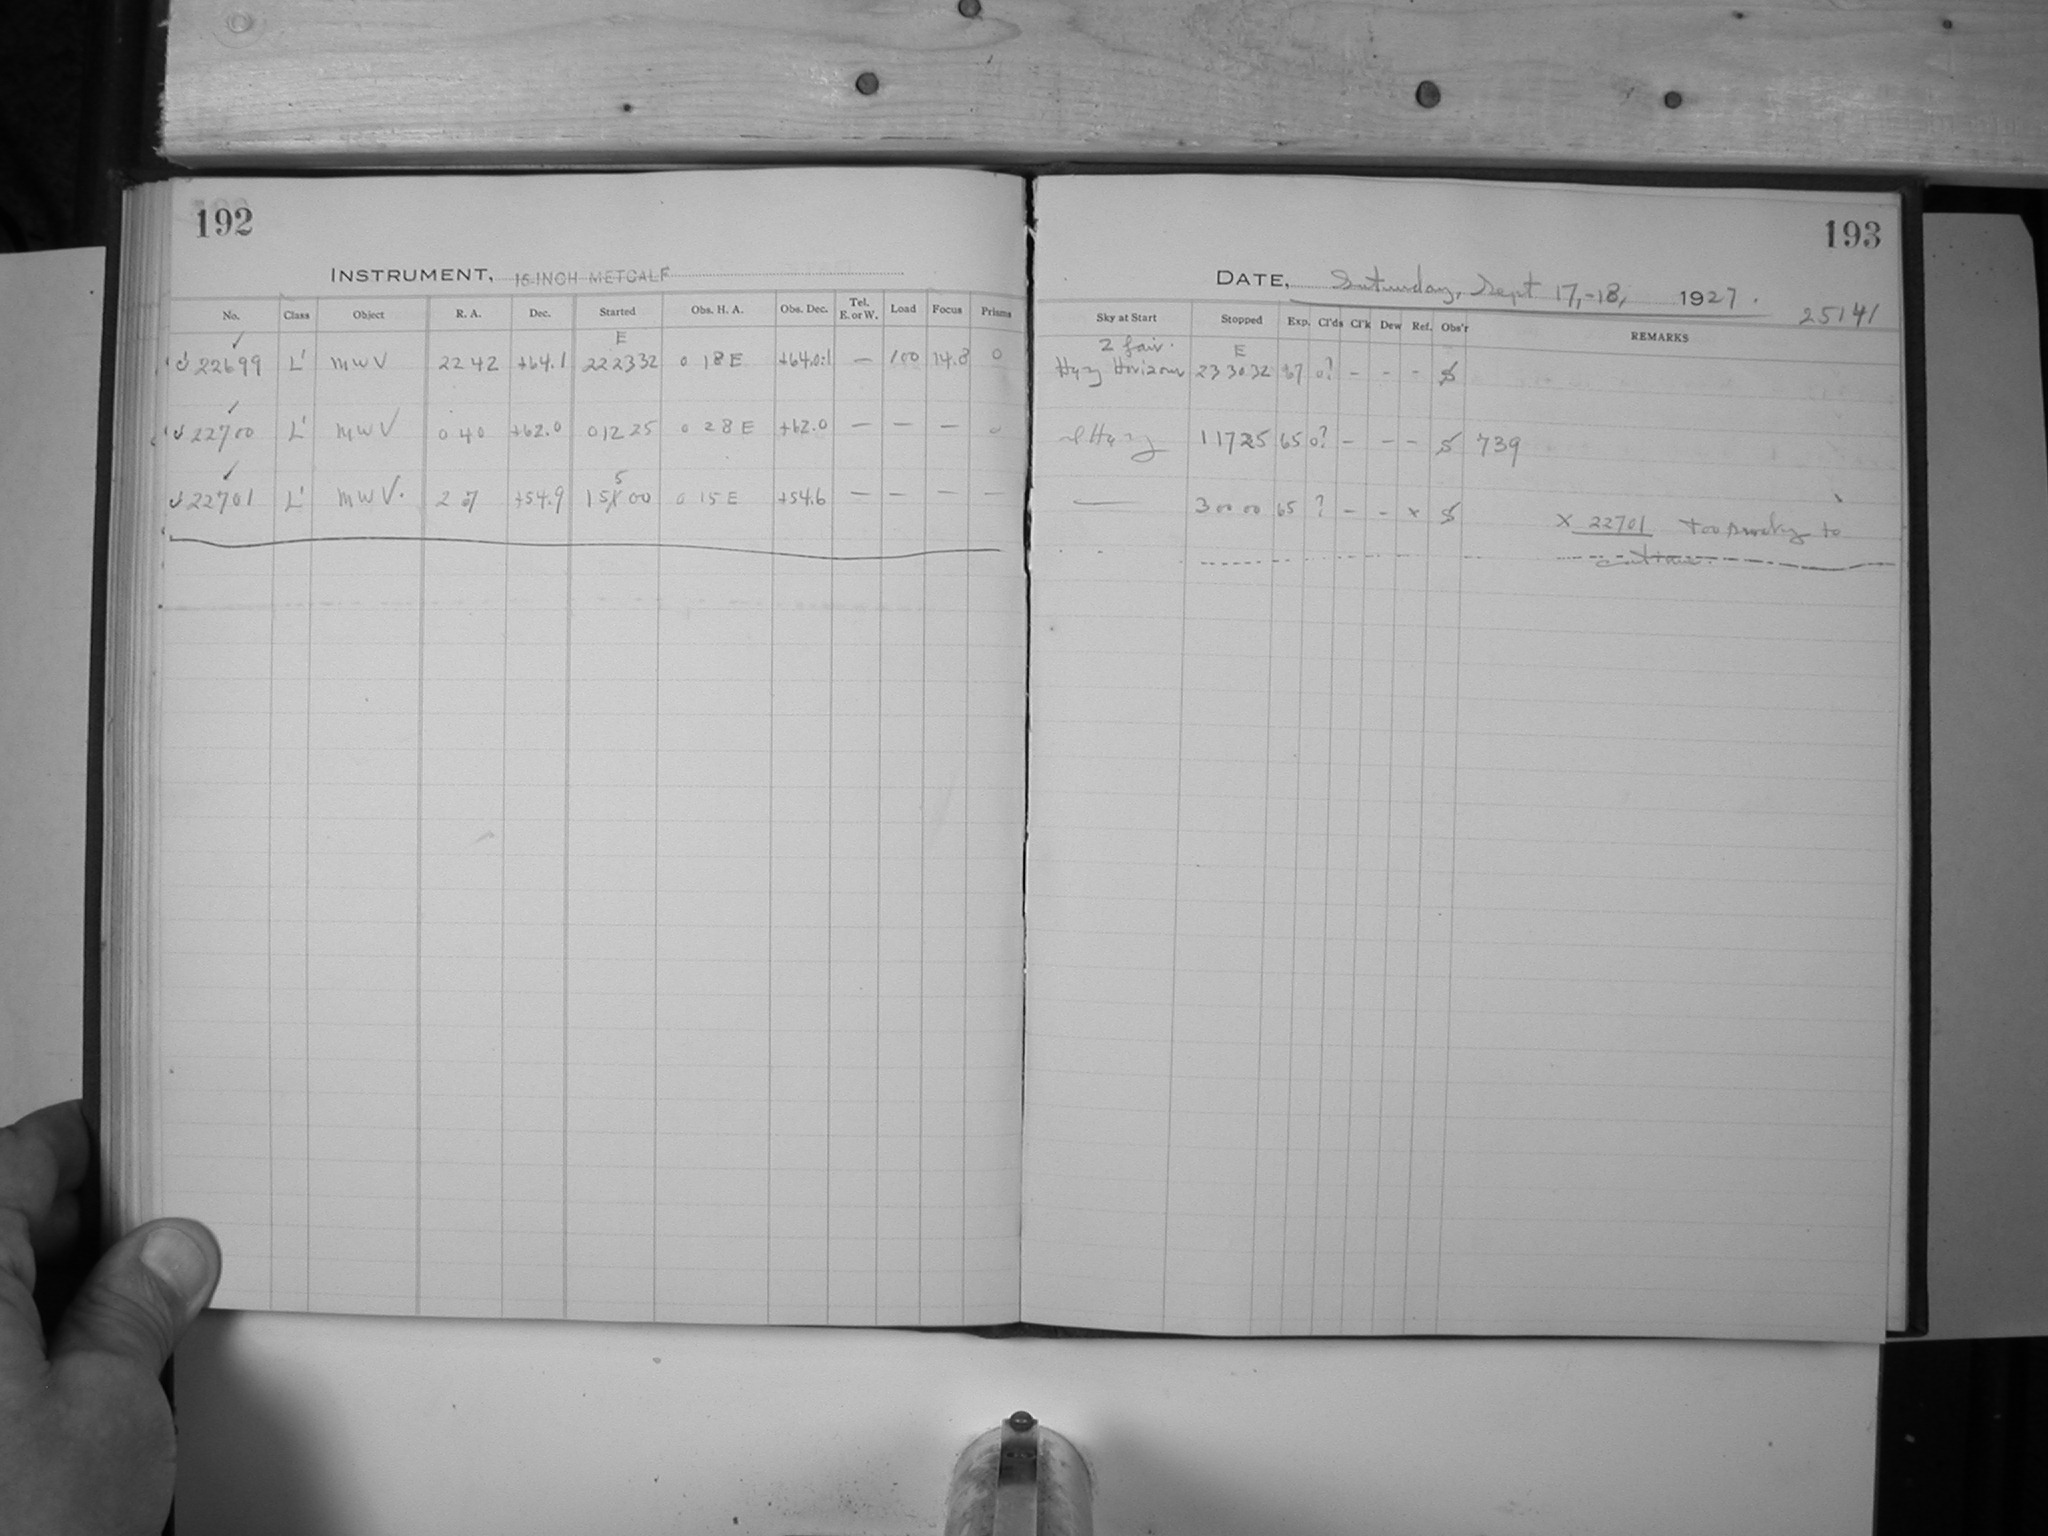 192
INSTRUMENT, 16-INCH METCALF
No. Class Object R. A. Dec. Started Obs. H. A. Obs. Dec. Tel. E. or W. Load Focus Prisms
E
22699 L' MWV 22 42 +64.1 222332 0 18 E +64.0:1 — 100 14.8 0
22700 L' MWV 0 40 +62.0 01225 0 28 E +62.0 — — —
5
22701 L' MWV. +54.9 00 0 15 E +54.6 — — — —
193
DATE, Saturday, Sept 17,-18, 1927.
25141
Sky at Start Stopped Exp. Cl'ds Cl'k Dew Ref. Obs'r REMARKS
2 fair. E
Hazy Horizon 233032 67 0? - - -
Hazy 11725 65 0? - - - 739
— 30000 65 ? - - x x 22701 Too smoky to
continue.